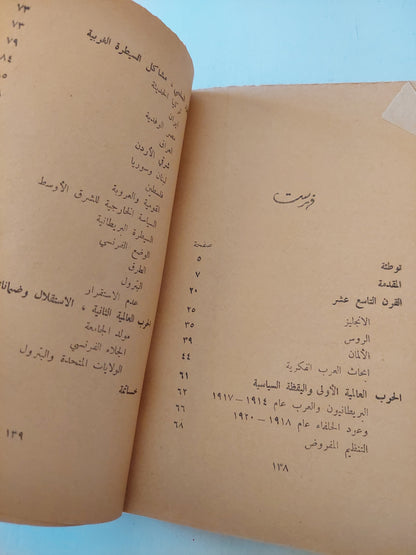 فهرست
صفحة
توطئة ٥
المقدمة ٧
القرن التاسع عشر ٢٠
الانجليز ٢٥
الروس ٣٥
الألمان ٣٩
ابحاث العرب الفكرية ٤٤
الحرب العالمية الأولى واليقظة السياسية ٦١
البريطانيون والعرب عام ١٩١٤ – ١٩١٧ ٦٢
وعود الحلفاء عام ١٩١٨ – ١٩٢٠ ٦٦
التنظيم المفروض ٦٨
١٣٨
، مشاكل السيطرة الغربية ٧٣
تركيا الحديثة ٧٣
ايران ٧٩
مصر الوفدية
العراق
شرقي الأردن
لبنان وسوريا
فلسطين
القومية والعروبة
السياسة الخارجية للشرق الأوسط
السيطرة البريطانية
الوضع الفرنسي
الطرق
البترول
عدم الاستقرار
الحرب العالمية الثانية ، الاستقلال
مولد الجامعة
الجلاء الفرنسي
الولايات المتحدة والبترول
خاتمة
١٣٩